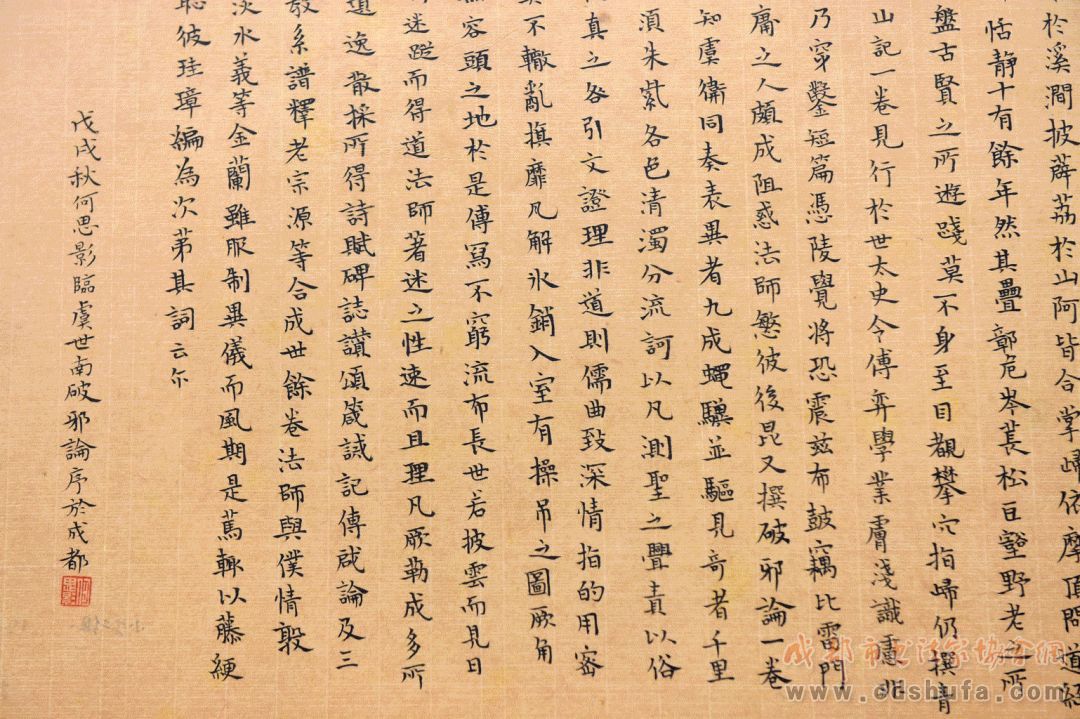 於溪澗披薜荔於山阿皆合掌歸依摩頂問道經
恬静十有餘年然其疊鄣危岑萇松巨壑野老之所
盤古賢之所遊踐莫不身至目覩攀穴指歸仍撰青
山記一卷見行於世太史令傅弈學業膚淺識慮非
乃穿鑿短篇憑陵覺將恐震兹布鼓竊比雷門
庸之人頗成阻惑法師愍彼後昆又撰破邪論一卷
知虞衞同奏表異者九成蠅驥並驅見奇者千里
湏朱紫各色清濁分流訶以凡測聖之舋責以俗
真之咎引文證理非道則儒曲致深情指的用密
不轍亂旗靡凡解氷銷入室有操吊之圖厥角
容頭之地於是傳寫不窮流布長世若披雲而見日
迷蹤而得道法師著迷之性速而且理凡厥勒成多所
遺逸散採所得詩賦碑誌讃頌箴誡記傳啟論及三
教系譜釋老宗源等合成世餘卷法師與僕情敦
淡水義等金蘭雖服制異儀而風期是萬輙以藤綆
恥彼珪璋編為次苐其詞云尒
戊戌秋何思影臨虞世南破邪論序於成都
成都市书法家协会网
www.cdshufa.com